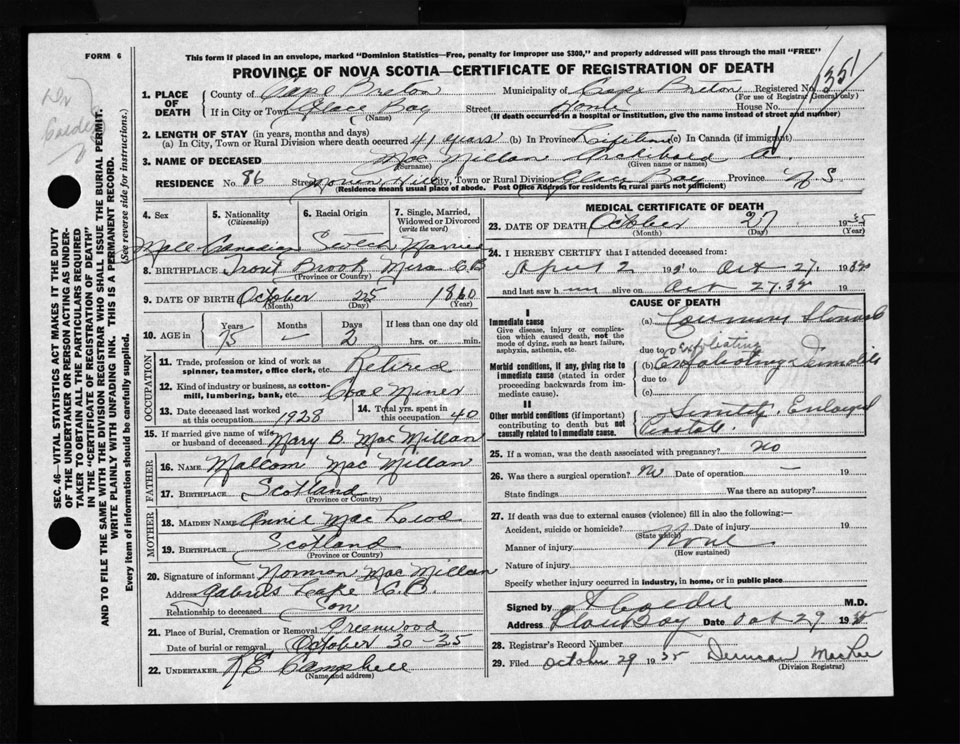 FORM 6
This form if placed in an envelope, marked "Dominion Statistics—Free, penalty for improper use $300," and properly addressed will pass through the mail "FREE"
PROVINCE OF NOVA SCOTIA—CERTIFICATE OF REGISTRATION OF DEATH
351
1. PLACE OF DEATH
County of Cape Breton Municipality of Cape Breton Registered No.
(For use of Registrar General only)
If in City or Town Glace Bay Street Home House No.
(Name) (If death occurred in a hospital or institution, give the name instead of street and number)
2. LENGTH OF STAY (in years, months and days)
(a) In City, Town or Rural Division where death occurred 41 years (b) In Province Lifetime (c) In Canada (if immigrant)
3. NAME OF DECEASED Mac Millan Archibald A.
(Surname) (Given name or names)
RESIDENCE No. 86 Street City, Town or Rural Division Glace Bay Province N S
(Residence means usual place of abode. Post Office Address for residents in rural parts not sufficient)
4. Sex
5. Nationality (Citizenship)
6. Racial Origin
7. Single, Married, Widowed or Divorced (write the word)
Male Canadian Scotch Married
8. BIRTHPLACE Trout Brook Mira C.B
(Province or Country)
9. DATE OF BIRTH October 25 1860
(Month) (Day) (Year)
10. AGE in
Years Months Days If less than one day old
75 – 2 hrs. or min.
OCCUPATION
11. Trade, profession or kind of work as spinner, teamster, office clerk, etc. Retired
12. Kind of industry or business, as cotton-mill, lumbering, bank, etc. Coal Miner
13. Date deceased last worked at this occupation 1928
14. Total yrs. spent in this occupation 40
15. If married give name of wife or husband of deceased Mary B. Mac Millan
FATHER
16. NAME Malcom Mac Millan
17. BIRTHPLACE Scotland
(Province or Country)
MOTHER
18. MAIDEN NAME Annie Mac Leod
19. BIRTHPLACE Scotland
(Province or Country)
20. Signature of informant Norman Mac Millan
Address Gabarus Lake C.B.
Relationship to deceased Son
21. Place of Burial, Cremation or Removal Greenwood
Date of burial or removal October 30-35
22. UNDERTAKER Campbell
(Name and address)
MEDICAL CERTIFICATE OF DEATH
23. DATE OF DEATH October 27 1935
(Month) (Day) (Year)
24. I HEREBY CERTIFY that I attended deceased from:
April 2 193 to Oct 27, 1935 19
and last saw h im alive on Oct 27.35 19
CAUSE OF DEATH
I
Immediate cause
Give disease, injury or complication which caused death, not the mode of dying, such as heart failure, asphyxia, asthenia, etc.
(a)
due to Exfoliating
Morbid conditions, if any, giving rise to immediate cause (stated in order proceeding backwards from immediate cause).
(b) Exfoliating Dermatitis
due to
(c)
II
Other morbid conditions (if important) contributing to death but not causally related to immediate cause.
Senility. Enlarged
Prostate.
25. If a woman, was the death associated with pregnancy? no
26. Was there a surgical operation? No Date of operation – 19
State findings Was there an autopsy?
27. If death was due to external causes (violence) fill in also the following:—
Accident, suicide or homicide? Date of injury 19
(State which)
Manner of injury None
(How sustained)
Nature of injury
Specify whether injury occurred in industry, in home, or in public place
Signed by M.D.
Address Glace Bay Date Oct 29 1935
28. Registrar's Record Number
29. Filed October 29 1935
(Division Registrar)
SEC. 46—VITAL STATISTICS ACT MAKES IT THE DUTY
OF THE UNDERTAKER OR PERSON ACTING AS UNDERTAKER TO OBTAIN ALL THE PARTICULARS REQUIRED
IN THE "CERTIFICATE OF REGISTRATION OF DEATH"
AND TO FILE THE SAME WITH THE DIVISION REGISTRAR WHO SHALL ISSUE THE BURIAL PERMIT.
WRITE PLAINLY WITH UNFADING INK. THIS IS A PERMANENT RECORD.
Every item of information should be carefully supplied. (See reverse side for instructions.)